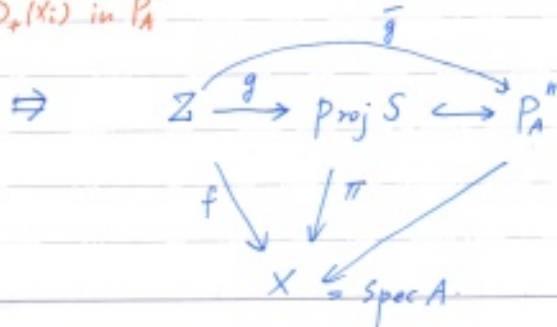 D₊(xᵢ) in P_A
ḡ
⇒ Z →g Proj S ↪ P_A^n
f π
X = Spec A.